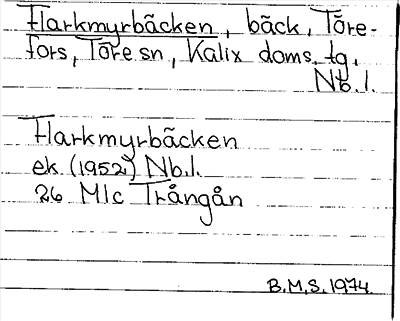 Harkmyrbäcken, bäck, Töre-
fors, Töre sn, Kalix doms. tg,
Nb.l.
Harkmyrbäcken
ek. (1952) Nb.l.
26 Mlc Trångån
B.M.S. 1974